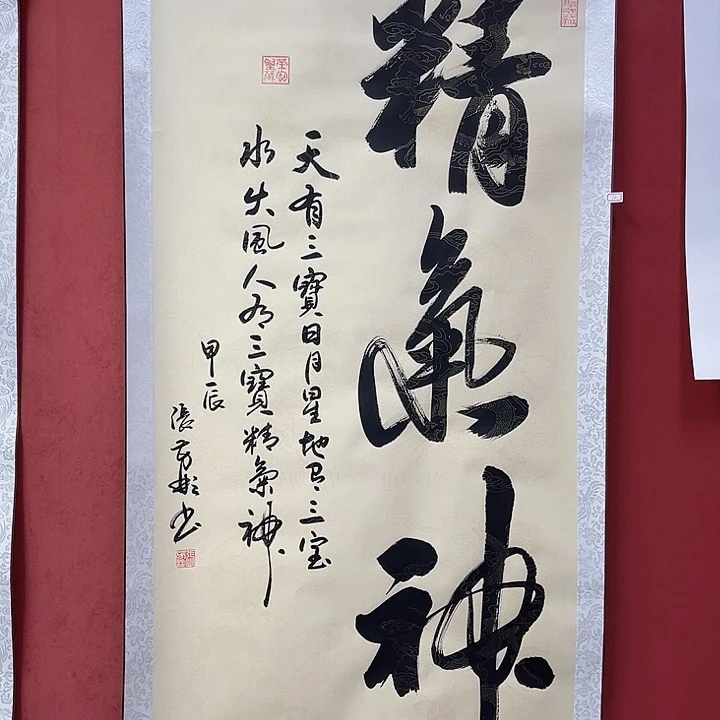 精氣神
天有三寶日月星地有三宝
水火風人有三寶精氣神
甲辰
張芳彬书